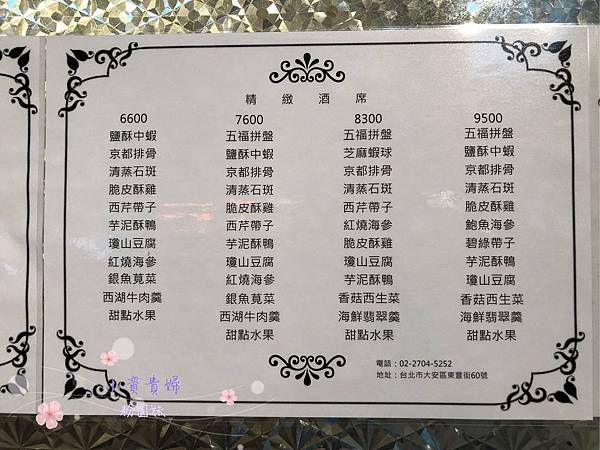 精緻酒席
6600
鹽酥中蝦
京都排骨
清蒸石斑
脆皮酥雞
西芹帶子
芋泥酥鴨
瓊山豆腐
紅燒海參
銀魚莧菜
西湖牛肉羹
甜點水果
7600
五福拼盤
鹽酥中蝦
京都排骨
清蒸石斑
脆皮酥雞
西芹帶子
芋泥酥鴨
瓊山豆腐
紅燒海參
銀魚莧菜
西湖牛肉羹
甜點水果
8300
五福拼盤
芝麻蝦球
京都排骨
清蒸石斑
西芹帶子
紅燒海參
脆皮酥雞
瓊山豆腐
芋泥酥鴨
香菇西生菜
海鮮翡翠羹
甜點水果
9500
五福拼盤
鹽酥中蝦
京都排骨
清蒸石斑
脆皮酥雞
鮑魚海參
碧綠帶子
芋泥酥鴨
瓊山豆腐
香菇西生菜
海鮮翡翠羹
甜點水果
電話：02-2704-5252
地址：台北市大安區東豐街60號
資貴婦